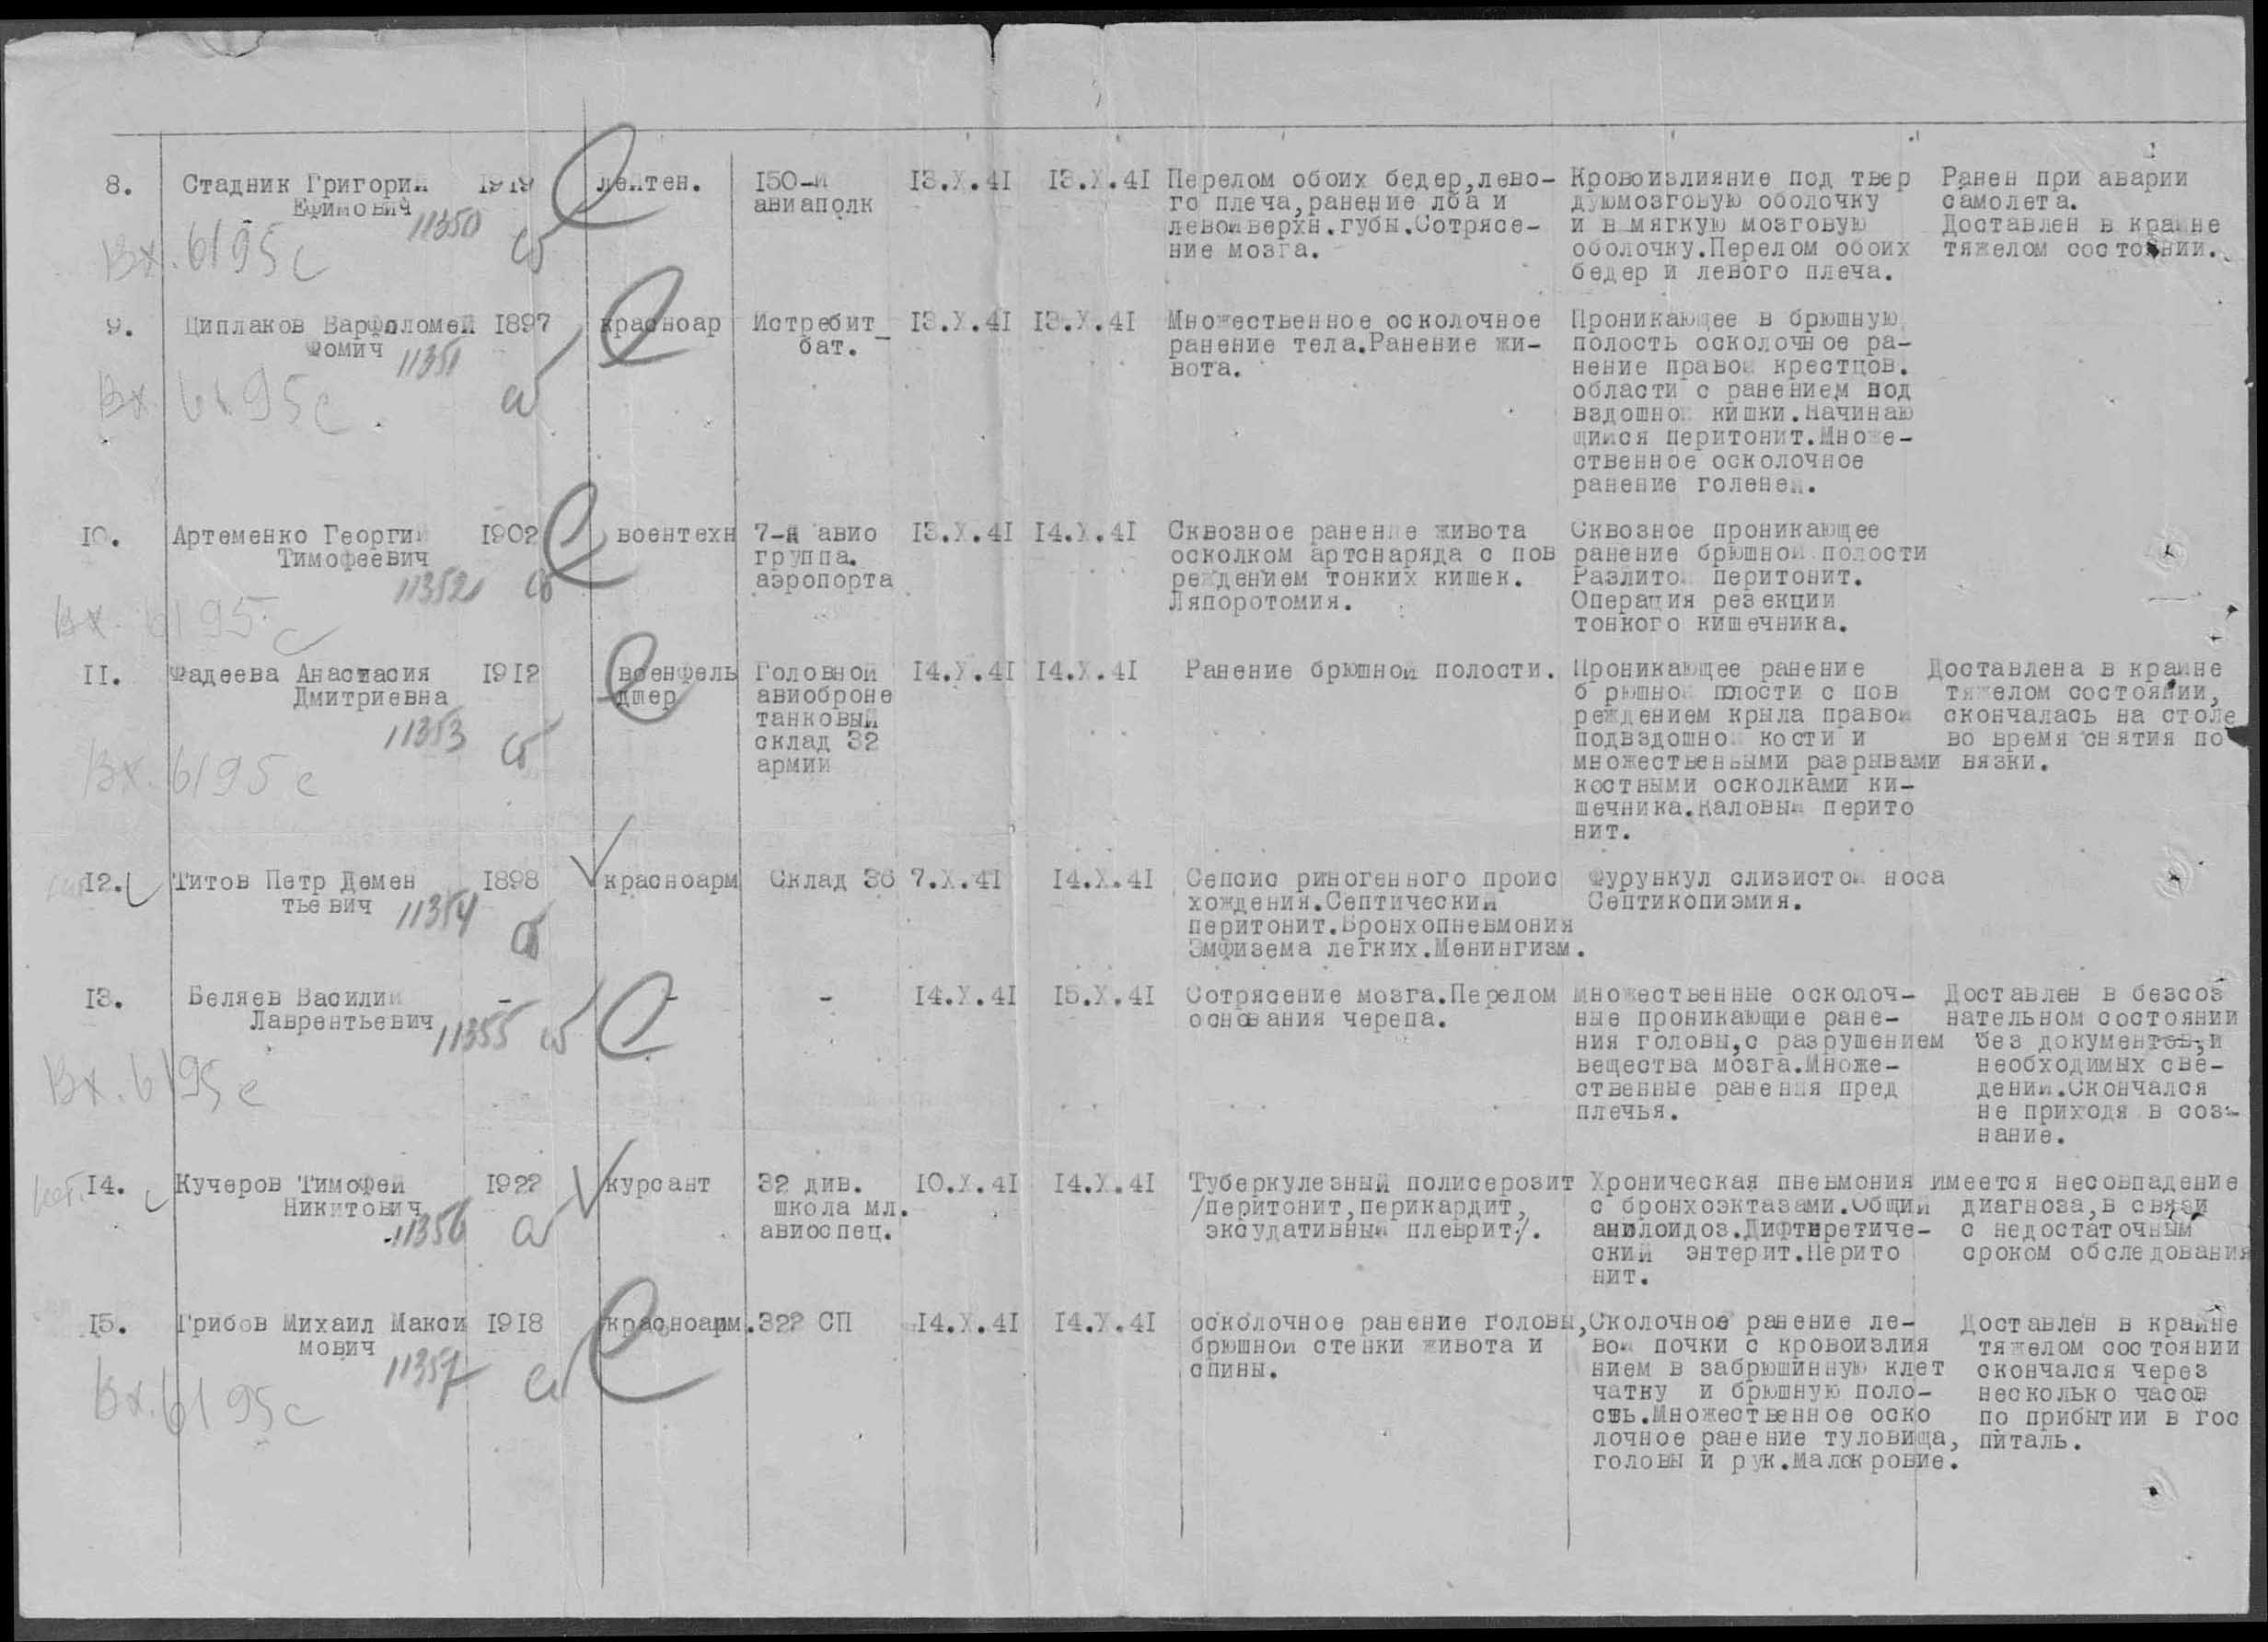 8. Стадник Григорий 1919 лейтен. 150-й 13.X.41 13.X.41 Перелом обоих бедер,лево- Кровоизлияние под твер Ранен при аварии
Ефимович авиаполк го плеча,ранение лба и дуюмозговую оболочку самолета.
11350 левойверхн.губы.Сотрясе- и в мягкую мозговую Доставлен в крайне
Вх. 6195с ние мозга. оболочку.Перелом обоих тяжелом состоянии.
бедер и левого плеча.
9. Циплаков Варфоломей 1897 красноар Истребит 13.X.41 13.X.41 Множественное осколочное Проникающее в брюшную
Фомич 11351 бат. ранение тела.Ранение жи- полость осколочное ра-
вота. нение правой крестцов.
Вх. 6195с области с ранением под
вздошной кишки.Начинаю
щийся перитонит.Множе-
ственное осколочное
ранение голеней.
10. Артеменко Георгий 1902 воентехн 7-я авио 13.X.41 14.X.41 Сквозное ранение живота Сквозное проникающее
Тимофеевич группа. осколком артснаряда с пов ранение брюшной полости
11352 аэропорта реждением тонких кишек. Разлитой перитонит.
Вх. 6195с Ляпоротомия. Операция резекции
тонкого кишечника.
11. Фадеева Анастасия 1912 военфель Головной 14.X.41 14.X.41 Ранение брюшной полости. Проникающее ранение Доставлена в крайне
Дмитриевна дшер авиоброне брюшной плости с пов тяжелом состоянии,
11353 танковый реждением крыла правой скончалась на столе
склад 32 подвздошной кости и во время снятия по
Вх. 6195с армии множественными разрывами вязки.
костными осколками ки-
шечника.Каловый перито
нит.
12. Титов Петр Демен 1898 красноарм Склад 36 7.X.41 14.X.41 Сепсис риногенного проис Фурункул слизистой носа
тьевич 11354 хождения.Септический Септикопиэмия.
перитонит.Бронхопневмония
Эмфизема легких.Менингизм.
13. Беляев Василий - - - 14.X.41 15.X.41 Сотрясение мозга.Перелом множественные осколоч- Доставлен в безсоз
Лаврентьевич 11355 основания черепа. ные проникающие ране- нательном состоянии
ния головы,с разрушением без документов,и
Вх. 6195с вещества мозга.Множе- необходимых све-
ственные ранения пред дений.Скончался
плечья. не приходя в соз-
нание.
14. Кучеров Тимофей 1922 курсант 32 див. 10.X.41 14.X.41 Туберкулезный полисерозит Хроническая пневмония имеется несовпадение
Никитович школа мл. /перитонит,перикардит, с бронхоэктазами.Общий диагноза,в связи
11356 авиоспец. эксудативный плеврит/. амилоидоз.Дифтиретиче- с недостаточным
ский энтерит.Перито сроком обследования
нит.
15. Грибов Михаил Макси 1918 красноарм. 322 СП 14.X.41 14.X.41 осколочное ранение головы, Сколочное ранение ле- Доставлен в крайне
мович брюшной стенки живота и вой почки с кровоизлия тяжелом состоянии
11357 спины. нием в забрюшинную клет скончался через
Вх. 6195с чатку и брюшную поло- несколько часов
сть.Множественное оско по прибытии в гос
лочное ранение туловища, питаль.
головы и рук.Малокровие.